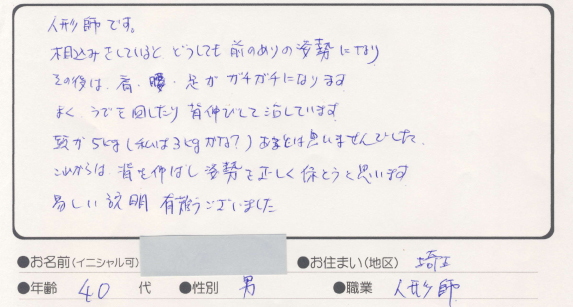 人形師です。
根込みをしていると どうしても 前のめりの姿勢になり
その後は、肩・腰・足が ガチガチになります
よく うでを回したり 背伸びして治しています
頭が5kg(私は3kgかな?)あるとは思いませんでした。
これからは 背を伸ばし 姿勢を正しく保とうと思います
易しい説明 有難うございました
●お名前(イニシャル可) ●お住まい(地区) 埼玉
●年齢 40 代 ●性別 男 ●職業 人形師